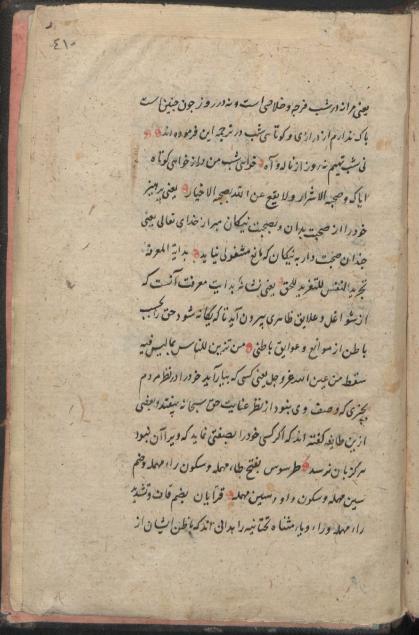 ٤١٠
یعنی مرا نه در شب فرجه و خلاصی است و نه در روز چون چنین است
باک ندارم از درازی و کوتاهی شب در ترجمه این فرموده اند
نی شب تهیم نه روز از ناله و آه خواهی شب من دراز خواهی کوتاه
ایاک و صحبة الاشرار و لا یقع عن الله بصحبة الاخیار یعنی پرهیز
خود را از صحبت بدان و بصحبت نیکان مبر از خدای تعالی یعنی
چندان صحبت دار به نیکان که مانع مشغولی نیاید بدایة المعرفة
تجرید النفس للتفرید للحق یعنی نشانه بدایت معرفت آنست که
از شواغل و علایق ظاهری بیرون آید تا که یگانه شود حق را بحسب
باطن از موانع و عوایق باطنی من تزین للناس بما لیس فیه
سقط من عین الله عز و جل یعنی کسی که بیاراید خود را در نظر مردم
بچیزی که وصف وی بنود از نظر عنایت حق سبحانه بیفتد و بعضی
ازین طایفه گفته اند که اگر کسی خود را بصفتی نماید که ویرا آن نبود
هرگز بآن نرسد طرسوس بفتح طاء مهمله و سکون راء مهمله و ضم
سین مهمله و سکون واو و سین مهمله قرایان بضم قاف و تشدید
راء مهمله و راء و یاء مثناه تحتانیه زاهدانی اند که باطن ایشان از